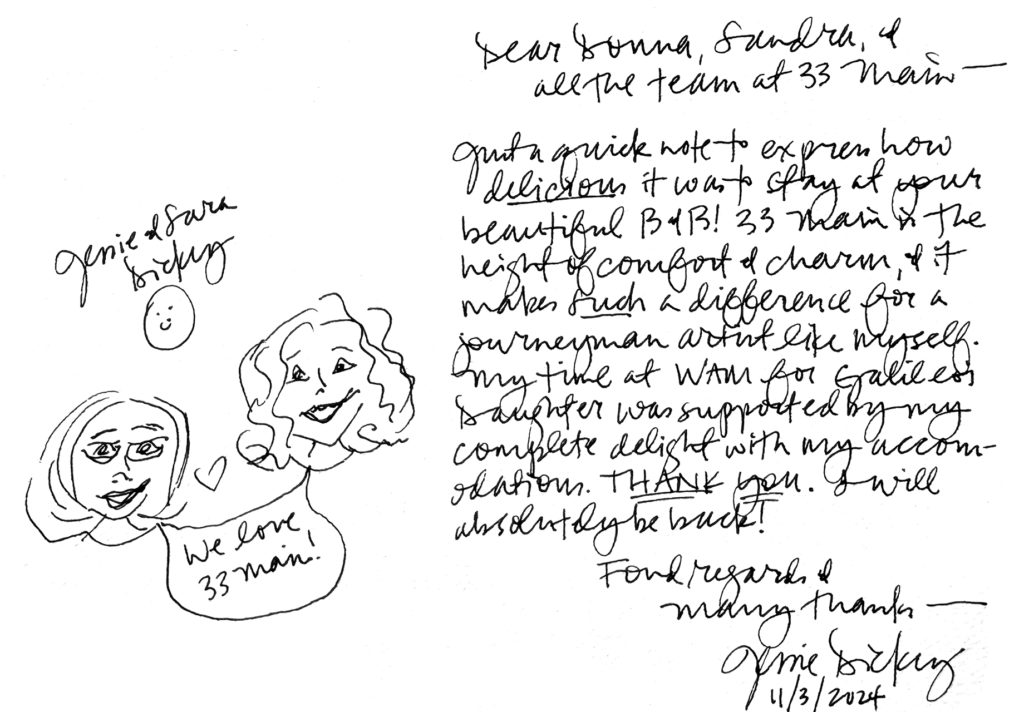 Jessie & Sara
Dickey
We love
33 Main!
Dear Donna, Sandra, &
all the team at 33 Main —
Just a quick note to express how
delicious it was to stay at your
beautiful B&B! 33 Main is the
height of comfort & charm, & it
makes such a difference for a
journeyman artist like myself.
My time at WAM for Galileo's
Daughter was supported by my
complete delight with my accom-
odations. THANK you. I will
absolutely be back!
Fond regards &
many thanks —
Jessie Dickey
11/3/2024